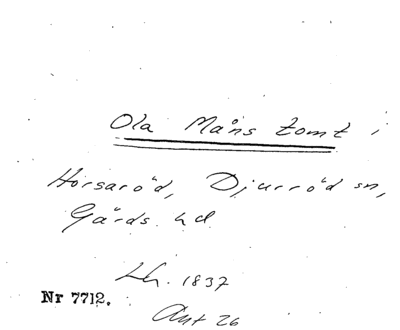 Ola Måns tomt i
Horsaröd, Djurröd sn,
Gärds hd.
Lh. 1837
Nr 7712.
Ant 26